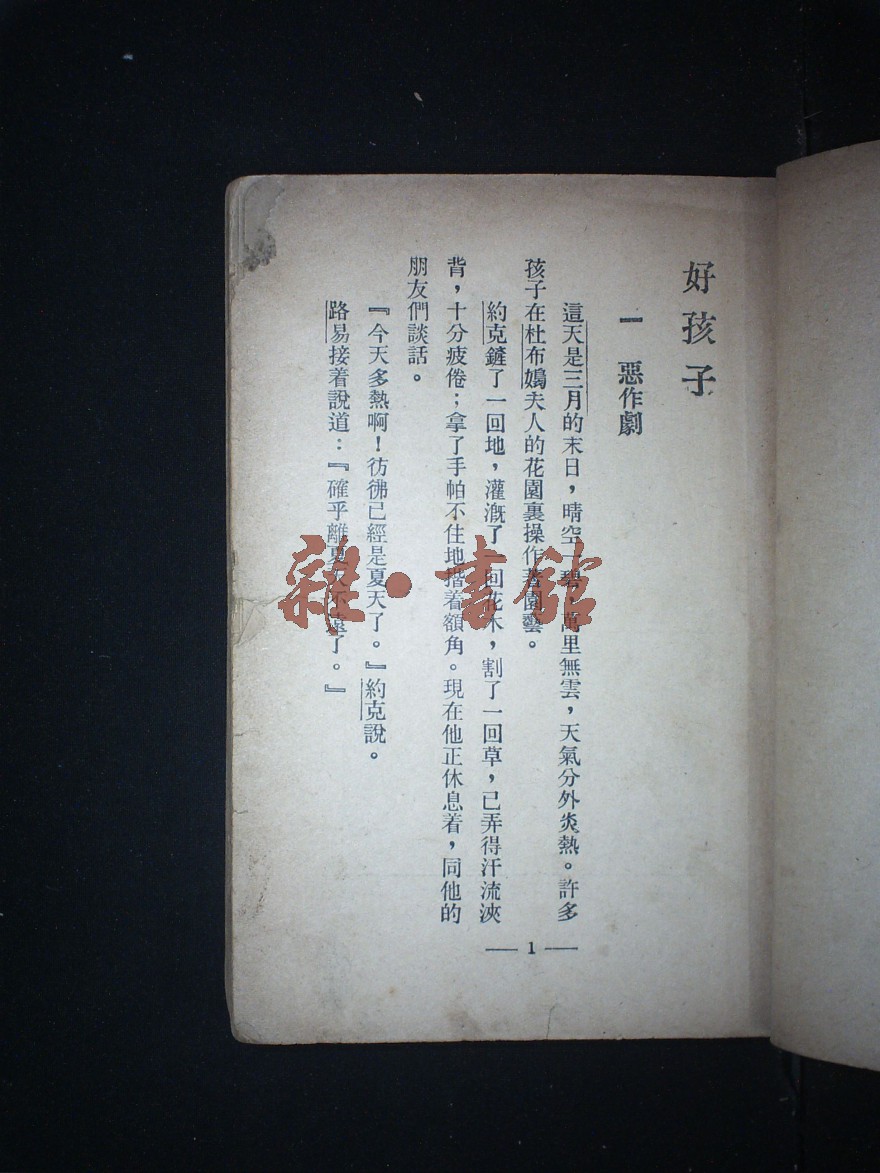 好孩子
一 惡作劇
這天是三月的末日，晴空一碧，萬里無雲，天氣分外炎熱。許多
孩子在杜布鴆夫人的花園裏操作着園藝。
約克鏟了一回地，灌漑了一回花木，割了一回草，已弄得汗流浹
背，十分疲倦；拿了手帕不住地揩着額角。現在他正休息着，同他的
朋友們談話。
『今天多熱啊！彷彿已經是夏天了。』約克說。
路易接着說道：『確乎離夏天不遠了。』
— 1 —
雜·書館